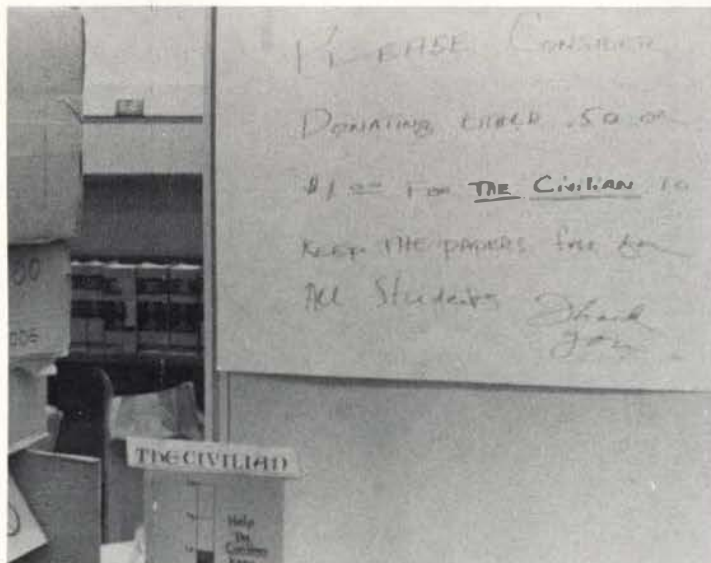 PLEASE CONSIDER
DONATING EITHER .50 OR
$1.00 FOR THE CIVILIAN TO
KEEP THE PAPERS free for
All Students Thank
you
THE CIVILIAN
Help
The
Civilian